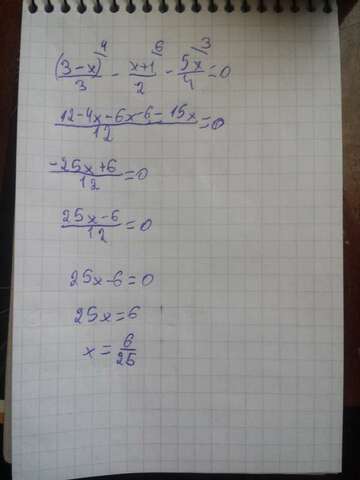 (3-x)/3 ⁴ - x+1/2 ⁶ - 5x/4 ³ =0
12-4x-6x-6-15x/12=0
-25x+6/12=0
25x-6/12=0
25x-6=0
25x=6
x=6/25